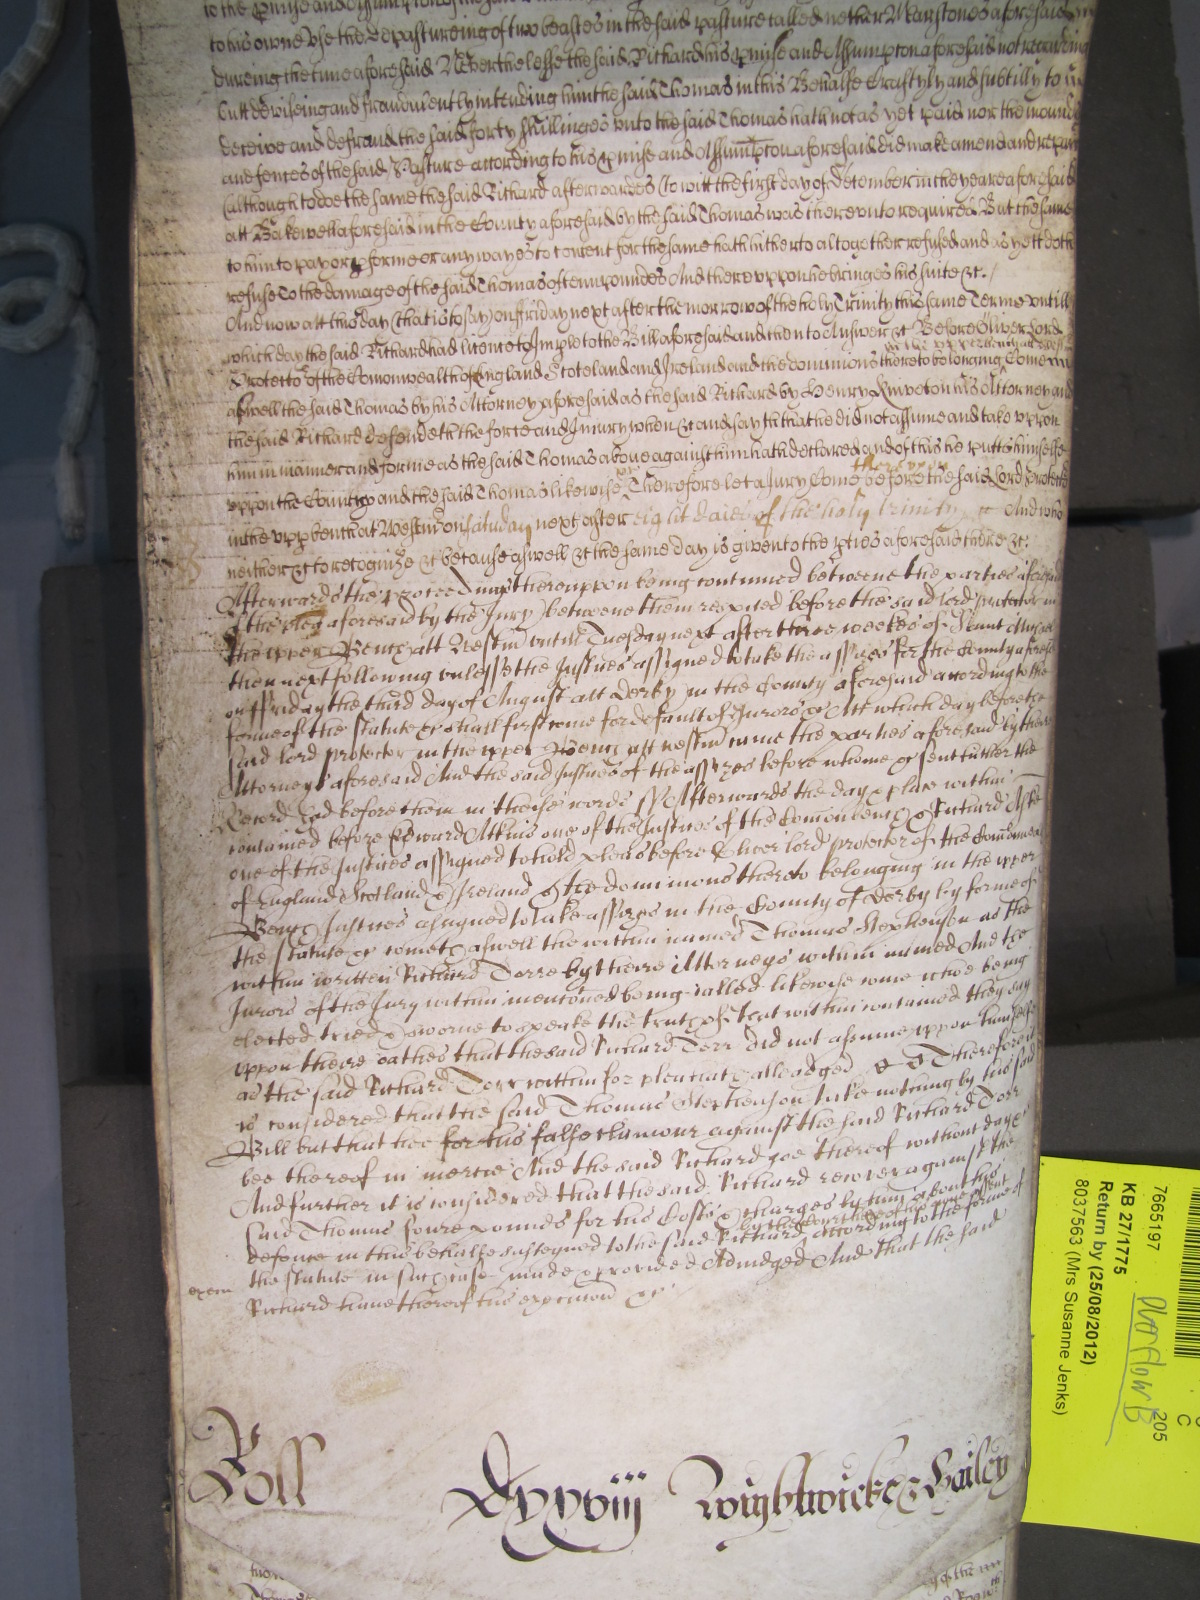 to his owne Use the Depastureing of two beastes in the said pasture called nether Marstones aforesaid
dureing the time aforesaid Neverthelesse the said Richard his p'mise and Assumpton aforesaid not regarding
butt deviseing and fraudulently intending him the said Thomas in this Behalfe Craftyly and subtilly to
deceive and defraud the said forty shillinges unto the said Thomas hath not as yet paid nor the mounds
and fences of the said Pasture according to his p'mise and Assumpton aforesaid did make amend and repair
(although to doe the same the said Richard afterwardes (to witt the first day of December in the yeare aforesaid
att Bakewell aforesaid in the County aforesaid by the said Thomas was thereunto required But the same
to him to pay or p'forme or any wayes to content for the same hath hitherto altogether refused and as yett doth
refuse To the damage of the said Thomas of ten poundes And thereuppon he bringes his suite &c.
And now att this day (that is to say) on ffriday next after the morrow of the holy Trinity this same Terme untill
which day the said Richard had licence to Imple to the Bill aforesaid and then to Answer &c Before Oliver Lord
Protector of the Comonwealth of England Scotland and Ireland and the dominions thereto belonging Come
aswell the said Thomas by his Attorney aforesaid as the said Richard by Henry Kniveton his Attorney and
the said Richard defendeth the force and Injury when &c and sayth that he did not assume and take uppon
him in manner and forme as the said Thomas above against him hath declared and of this he putts himselfe
uppon the Country and the said Thomas likewise Therefore let a Jury Come thereupon before the said Lord Protector
in the upp bench at Westm' on Satuday next after eight daies of the holy Trinity &c And who
neither &c to recognize &c because aswell &c the same day is given to the p'ties aforesaid there &c.
Afterwards the proceedings thereuppon being continued betweene the parties aforesaid
of the plea aforesaid by the Jury betweene them respited before the said lord protector in
the upper Bench att Westm' untill Tuesday next after three weekes of Saint Michael
then next following unlesse the Justices assigned to take the assizes for the County aforesaid
on ffriday the third day of August att Derby in the County aforesaid according to the
forme of the statute &c shall first come for default of Jurors &c Att which day before the
said lord protector in the upper Bench att Westm' came the parties aforesaid by their
Attorneys aforesaid And the said Justices of the assizes before whome &c sent hither their
Record had before them in these words ss Afterwards the day & place within
contained before Edward Atkins one of the Justices of the Comon bench & Richard Aske
one of the Justices assigned to hold pleas before Oliver lord protector of the Comonwealth
of England Scotland & Ireland & the dominions thereto belonging in the upper
Bench Justices assigned to take assizes in the County of Derby by forme of
the statute &c cometh aswell the within named Thomas Stephenson as the
within written Richard Torre by theire Attorneys within named And the
Jurors of the Jury within mentioned being called likewise come who being
elected tried & sworne to speake the truth of that within contained they say
uppon theire oathes that the said Richard Torr did not assume uppon himselfe
as the said Richard Torr within for plea hath alleadged &c Therefore it
is considered that the said Thomas Stephenson take nothing by his said
Bill but that hee for his false clamour against the said Richard Torr
bee thereof in mercie And the said Richard goe thereof without daye
And further it is considered that the said Richard recover against the
said Thomas foure pounds for his Costs & charges by him about his
defence in this behalfe susteyned to the said Richard by the Court here of his owne assent according to the forme of
the statute in such case made & provided Adiudged And that the said
Richard have thereof his execucion &c
Roll Dxxviij Wightwicke & Hailey
7665197 205
KB 27/1775
Return by (25/08/2012)
8037563 (Mrs Susanne Jenks)
Overflow B
C